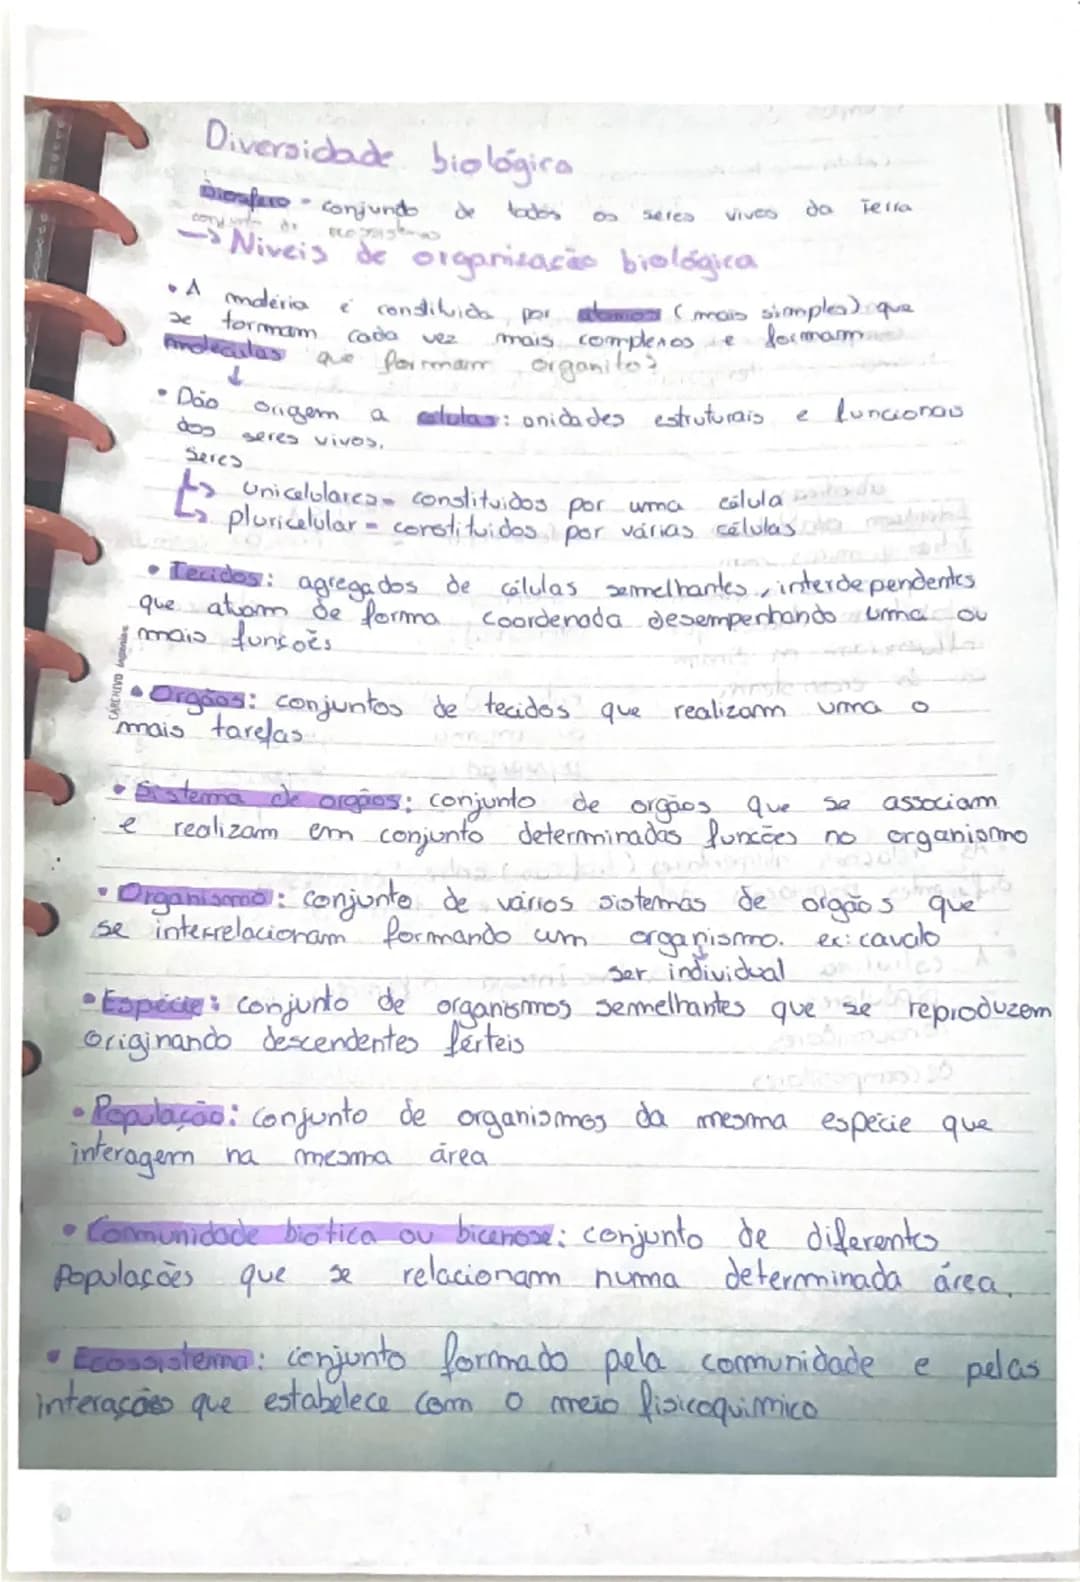 Diversidade biológica
Biosfera - conjundo de todos os seres vivos da Terra
conjunto de ecossistemas
→ Niveis de organização biológica
• A matéria é constituida por atomos (mais simples) que
se tormam cada vez mais complexos e formam
moleculas que formam organitos
↓
• Dão origem a celulas: unidades estruturais e funcionais
dos seres vivos.
Seres
↳ Unicelulares - constituidos por uma célula
↳ pluricelular - constituidos por várias células
• Tecidos: agregados de células semelhantes, interdependentes
que atuam de forma coordenada desempenhando uma ou
mais funções
CARCHIVO
• Orgãos: conjuntos de tecidos que realizam uma o
mais tarefas
• Sistema de orgãos: conjunto de orgãos que se associam
e realizam em conjunto determinadas funções no organismo
• Organismo: conjunto de vários sistemas de orgãos que
se interrelacionam formando um organismo. ex: cavalo
ser individual
• Espécie: conjunto de organismos semelhantes que se reproduzem
originando descendentes férteis
• População: conjunto de organismos da mesma espécie que
interagem na mesma área
• Comunidade biótica ou bicenose: conjunto de diferentes
Populações que se relacionam numa determinada área.
• Ecossistema: conjunto formado pela comunidade e pelas
interações que estabelece com o meio fisicoquimico